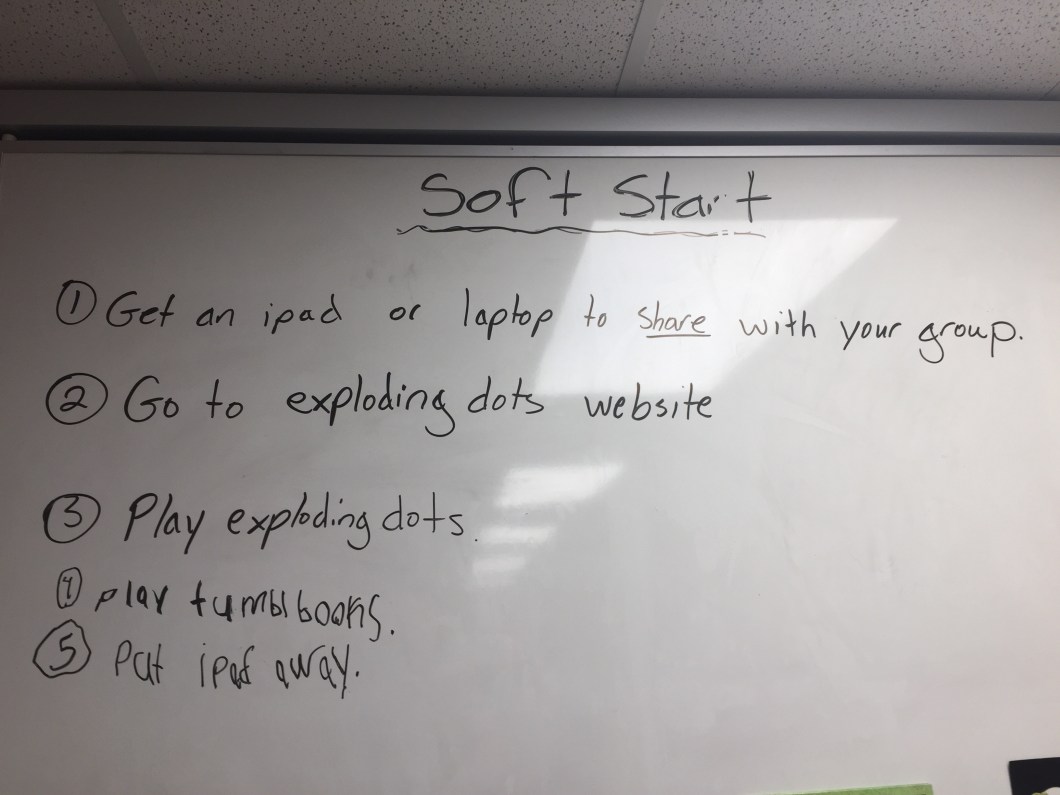 Soft Start
① Get an ipad or laptop to share with your group.
② Go to exploding dots website
③ Play exploding dots.
④ play tumblbooks.
⑤ Put ipad away.